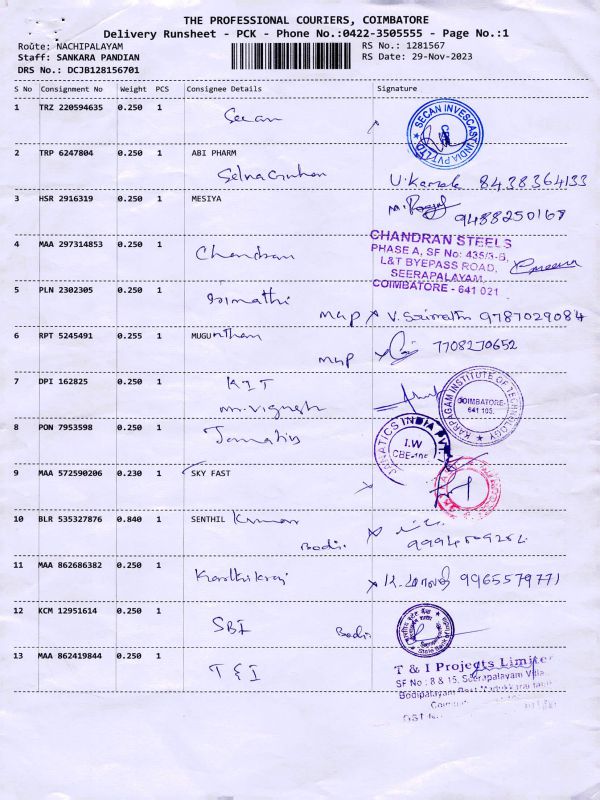 THE PROFESSIONAL COURIERS, COIMBATORE
Delivery Runsheet - PCK - Phone No.:0422-3505555 - Page No.:1
Route: NACHIPALAYAM
RS No.: 1281567
Staff: SANKARA PANDIAN
RS Date: 29-Nov-2023
DRS No.: DCJB128156701
S No Consignment No Weight PCS Consignee Details Signature
1 TRZ 220594635 0.250 1 Secan
SECAN INVESCAST INDIA PVT LTD
2 TRP 6247804 0.250 1 ABI PHARM
U. Kamala 8438364133
3 HSR 2916319 0.250 1 MESIYA
9488250168
4 MAA 297314853 0.250 1 Chandran
CHANDRAN STEELS
PHASE A, SF No: 435/3-B,
L&T BYEPASS ROAD,
SEERAPALAYAM,
COIMBATORE - 641 021
5 PLN 2302305 0.250 1
mgp V. 9787029084
6 RPT 5245491 0.255 1 MUGUnthan
mgp 7708270652
7 DPI 162825 0.250 1 KIT
mr. Vignesh
KARPAGAM INSTITUTE OF TECHNOLOGY
COIMBATORE-
641 105.
8 PON 7953598 0.250 1 Janatics
JANATICS INDIA PVT.
I.W
9 MAA 572590206 0.230 1 SKY FAST
10 BLR 535327876 0.840 1 SENTHIL Kumar
Bodi.
11 MAA 862686382 0.250 1 Karthikraj
9965579771
12 KCM 12951614 0.250 1 SBI
Bodi
State Bank of India
13 MAA 862419844 0.250 1 T & I
T & I Projects Limited
SF No : 8 & 15, Seerapalayam Villa
Bodipalayam Post